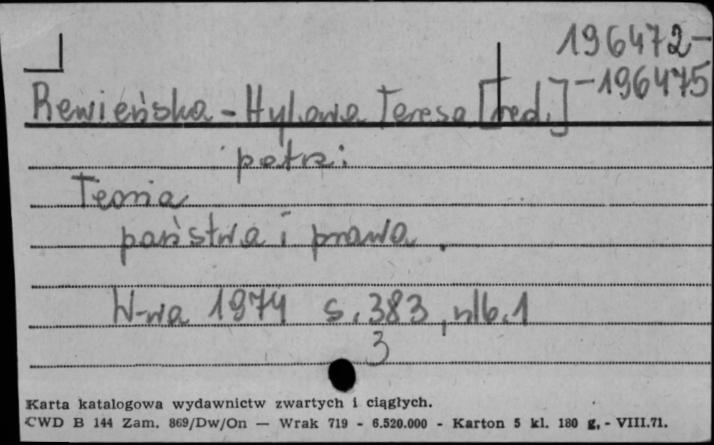 196472-
-196475
Rewieńska-Hylowa Teresa [red.]
patrz:
Teoria
państwa i prawa.
W-wa 1974 s. 383, nlb. 1
3
Karta katalogowa wydawnictw zwartych i ciągłych.
CWD B 144 Zam. 869/Dw/On — Wrak 719 - 6.520.000 - Karton 5 kl. 180 g. - VIII.71.